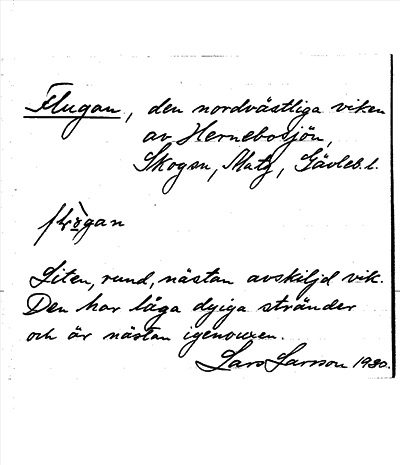 Flugan, den nordvästliga viken
av Hernebosjön,
Skogsn, Matg, Gävleb. l.
Liten, rund, nästan avskiljd vik.
Den har låga dyiga stränder
och är nästan igenvuxen.
Lars Larsson 1980.